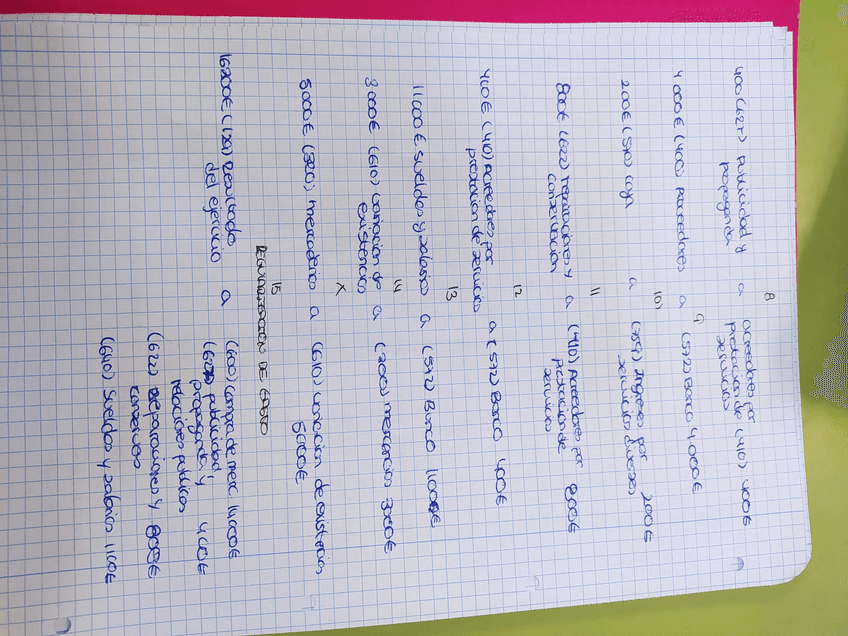 8
400 (627) Publicidad y a acreedores por
propaganda prestacion de (410) 400€
servicios
9
4000€ (400) Proveedores a (572) Banco 4000€
10
200€ (570) caja a (759) Ingresos por 200€
servicios diversos
11
800€ (622) reparaciones y a (410) Acreedores por 800€
conservacion prestacion de
servicios
12
400€ (410) Acreedores por a (572) Banco 400€
prestacion de servicios
13
1100€ sueldos y salarios a (572) Banco 1100€
14
3000€ (610) variacion de a (300) mercancias 3000€
existencias
X
5000€ (300) mercaderias a (610) variacion de existencias
5000€
15
REGULARIZACION DE GASTO
16200€ (129) Resultado a (600) Compra de merc. 14000€
del ejercicio (627) publicidad, 400€
propaganda y
relaciones publicas
(622) Reparaciones y 800€
(640) Sueldos y salarios 1100€